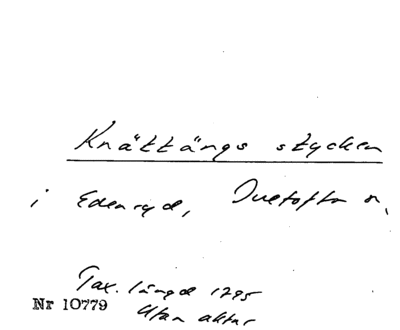 Knättängs stycken
i Edenryd, Ivetofta sn.
Tax. längd 1795
Nr 10779
Utan aktnr